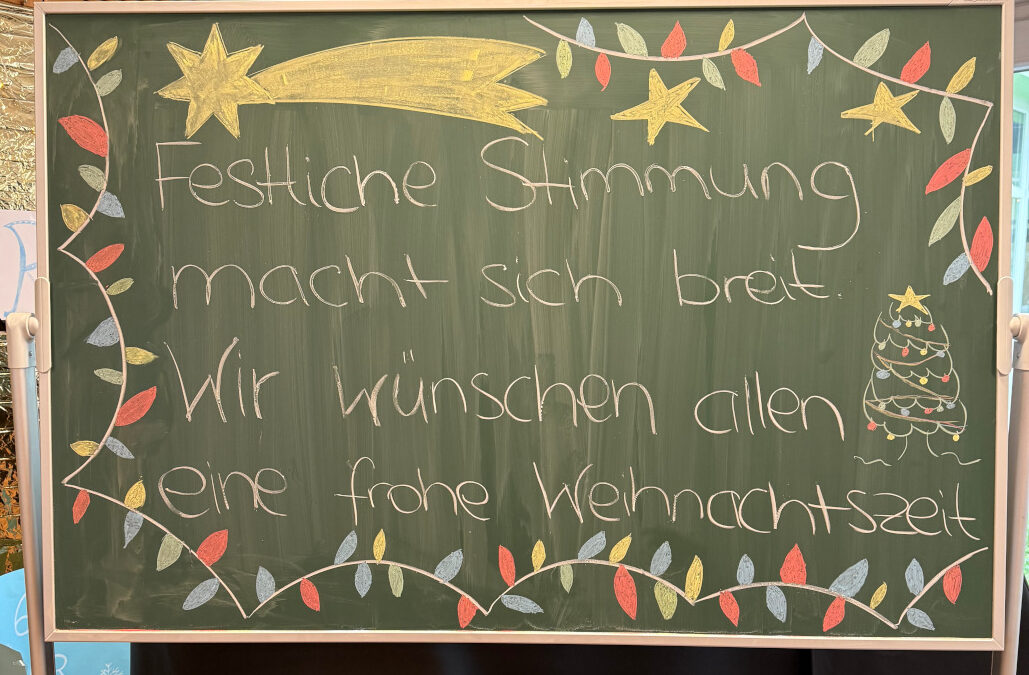 Festliche Stimmung
macht sich breit.
Wir wünschen allen
eine frohe Weihnachtszeit